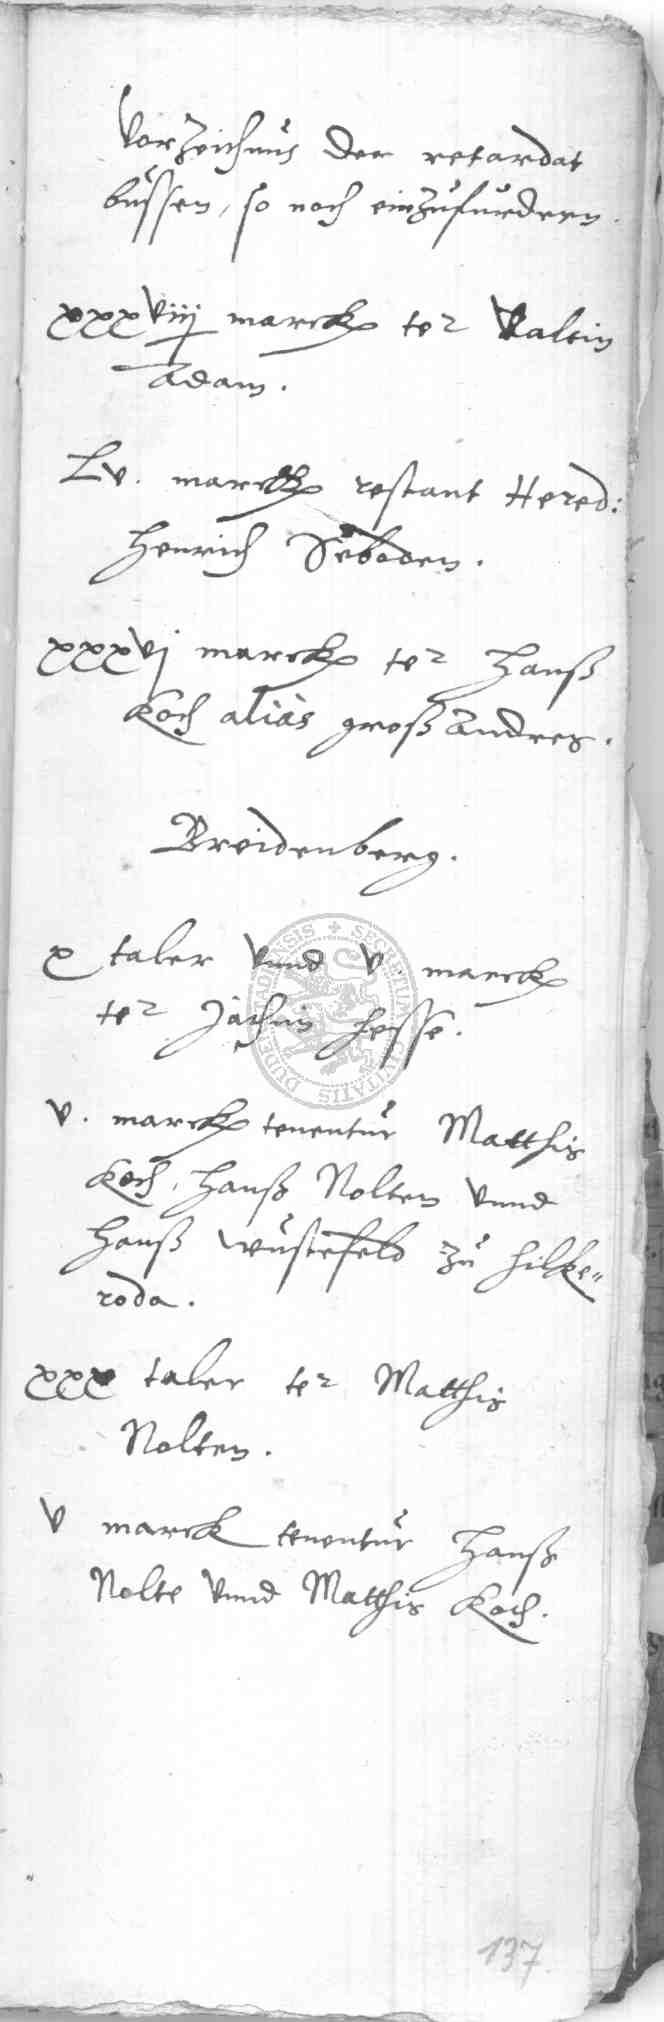 Vorzeichnus der retardat
bussen, so noch einzufurdern.
xxxviij marck ter Valtin
Adam.
Lv. marck restant Hered:
Henrich Seboden.
xxxvj marck ter Hanß
Koch alias groß Andres.
Breidenberg.
x taler vnnd v. marck
ter Jachin Hesse.
v. marck tenentur Matthis
Koch, Hanß Nolten vnnd
Hanß Wustefeld zu Hilke"
roda.
xxx taler ter Matthis
Nolten.
v marck tenentur Hanß
Nolte vnnd Matthis Koch.
137
SECRETUM CIVITATIS DUDERSTADENSIS